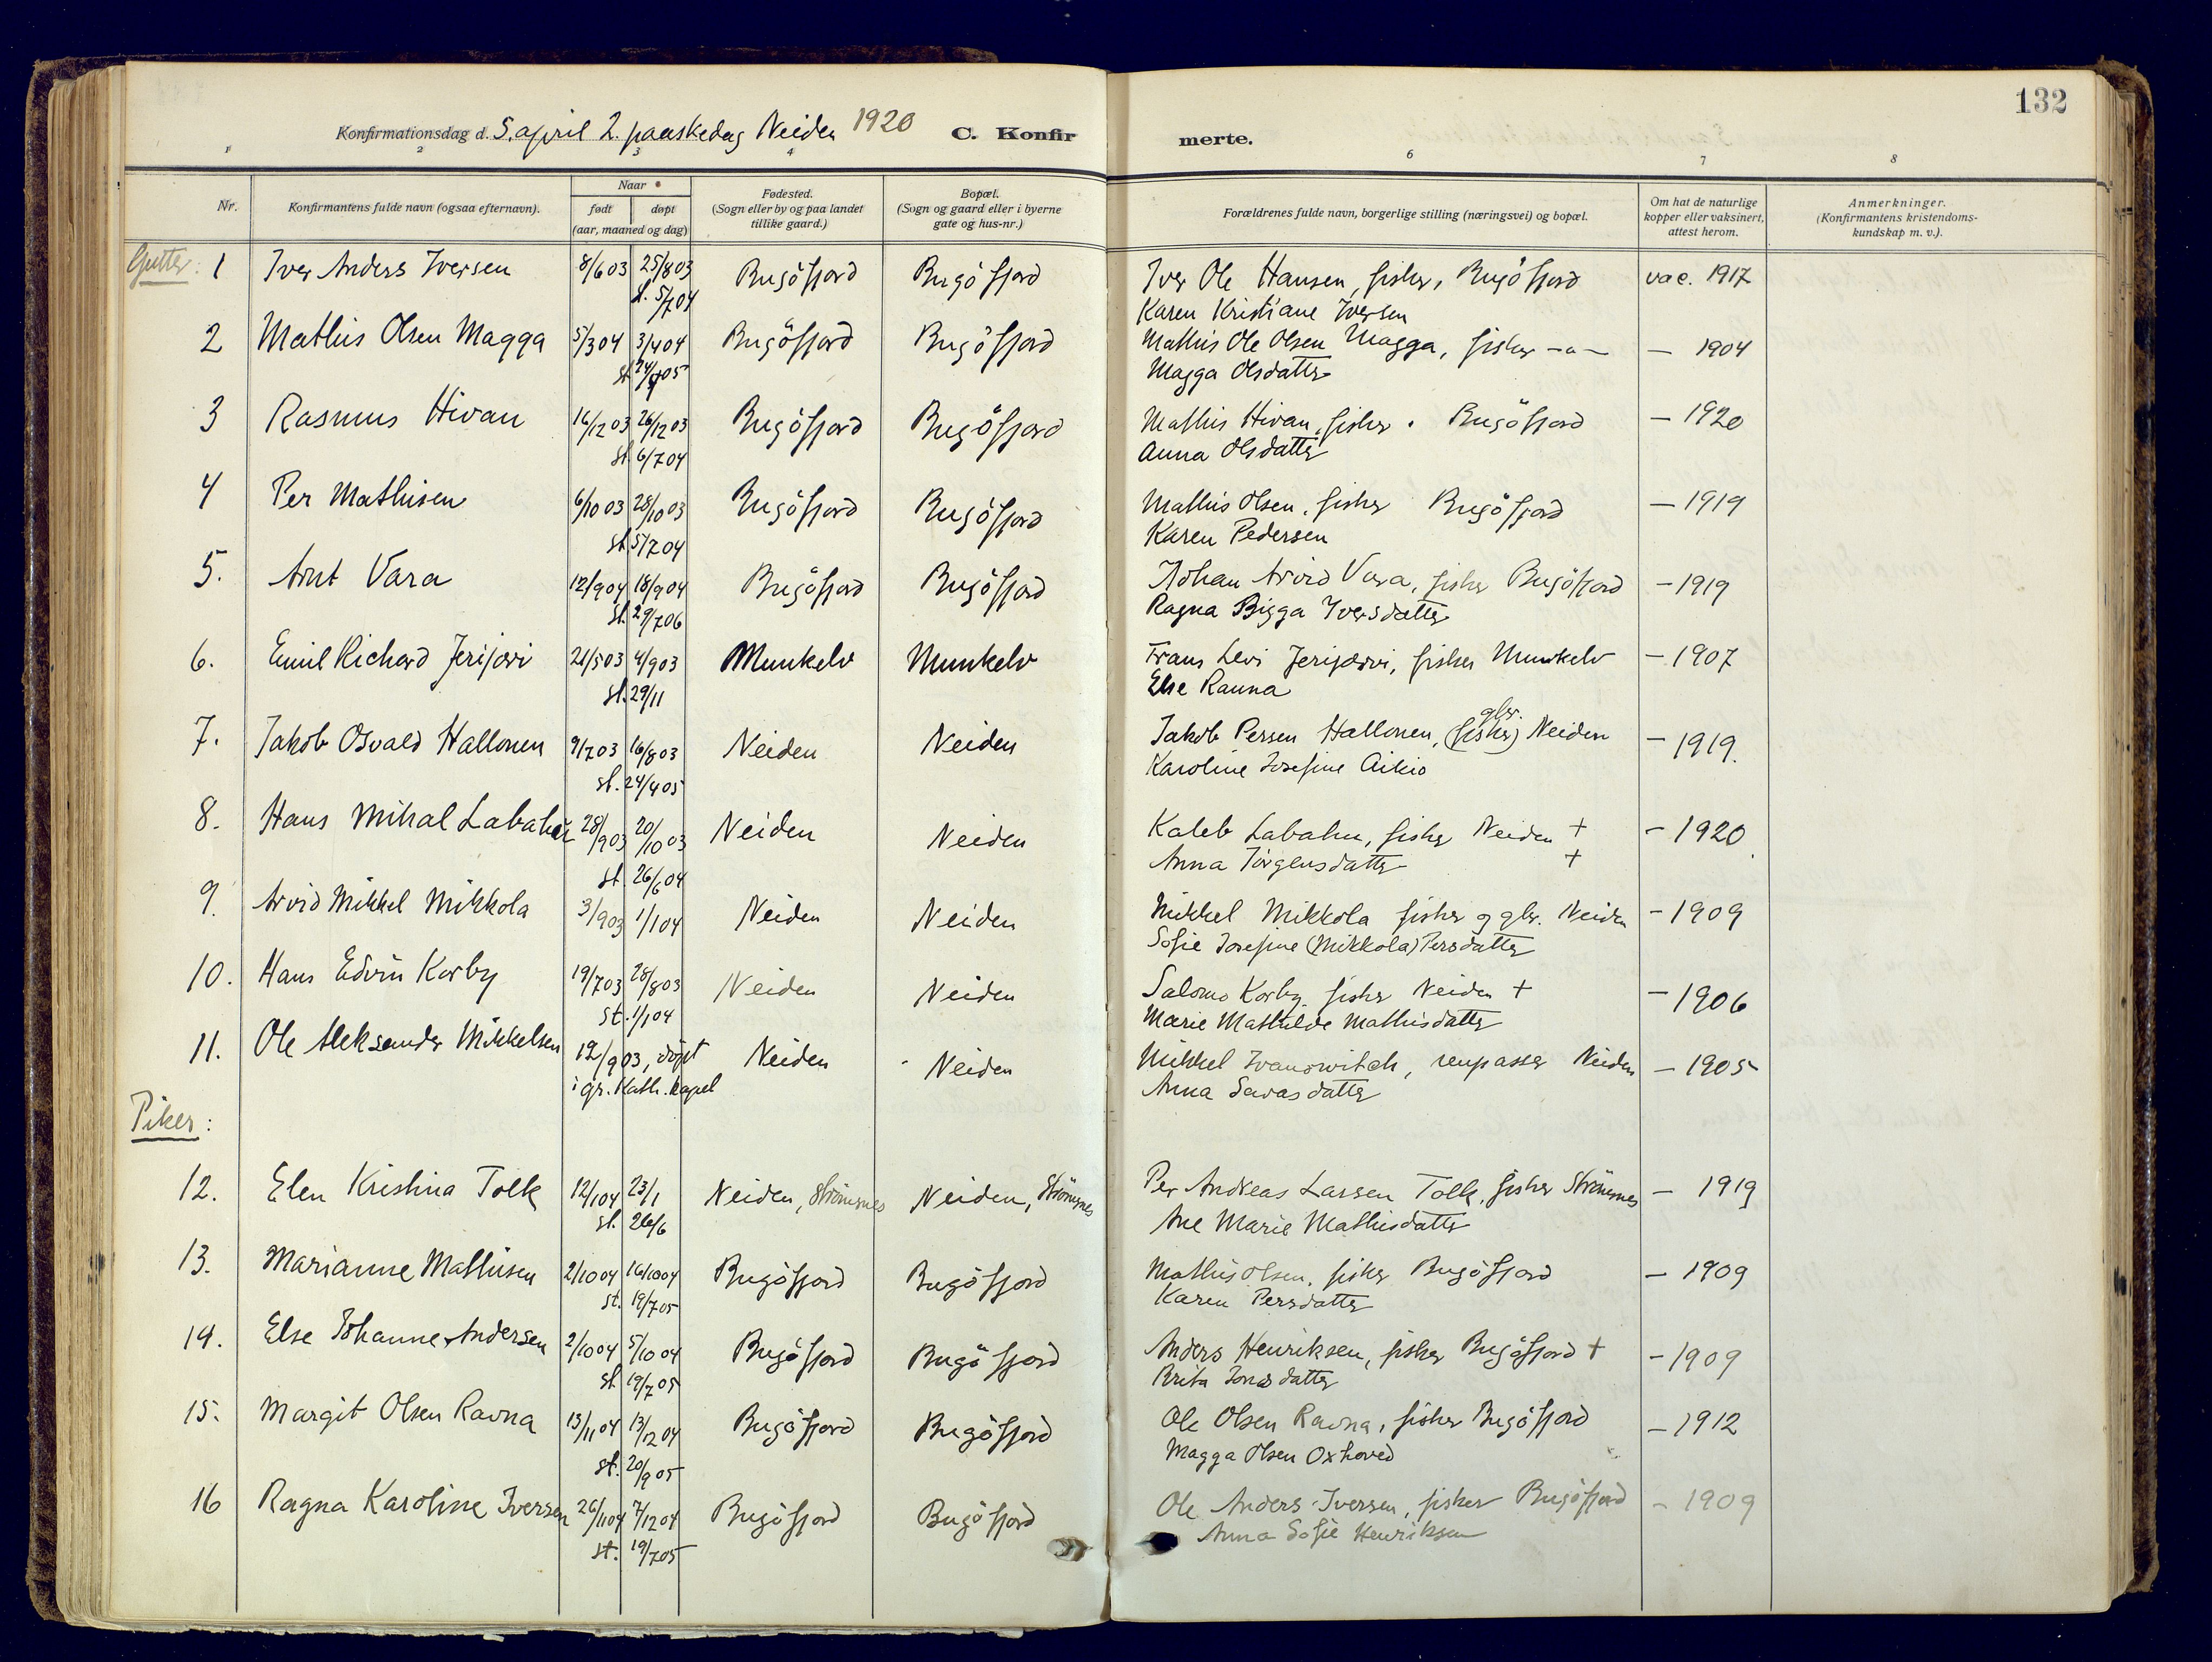 132
Konfirmationsdag d. 5. april 2. paaskedag Neiden 1920 C. Konfirmerte.
1 2 3 4 6 7 8
Nr. | Konfirmantens fulde navn (ogsaa efternavn). | Naar født døpt (aar, maaned og dag) | Fødested. (Sogn eller by og paa landet tillike gaard.) | Bopæl. (Sogn og gaard eller i byerne gate og hus-nr.) | Forældrenes fulde navn, borgerlige stilling (næringsvei) og bopæl. | Om hat de naturlige kopper eller vaksinert, attest herom. | Anmerkninger. (Konfirmantens kristendoms-kundskap m. v.).
Gutter:
1 Iver Anders Iversen 8/6 03 25/8 03 Bugöfjord Bugöfjord Iver Ole Hansen, fisker, Bugöfjord vac. 1917
st. 5/7 04 Karen Kristiane Iversen
2 Mathis Olsen Magga 5/3 04 3/4 04 Bugöfjord Bugöfjord Mathis Ole Olsen Magga, fisker -"- — 1904
st. 24/7 05 Magga Olsdatter
3 Rasmus Hivan 16/12 03 26/12 03 Bugöfjord Bugöfjord Mathis Hivan, fisker. Bugöfjord — 1920
st. 6/7 04 Anna Olsdatter
4 Per Mathisen 6/10 03 28/10 03 Bugöfjord Bugöfjord Mathis Olsen, fisker Bugöfjord — 1919
st. 5/7 04 Karen Pedersen
5. Arnt Vara 12/9 04 18/9 04 Bugöfjord Bugöfjord Johan Arvid Vara, fisker Bugöfjord — 1919
st. 29/7 06 Ragna Bigga Iversdatter
6. Emil Richard Jerijærvi 21/5 03 4/9 03 Munkelv Munkelv Frans Levi Jerijærvi, fisker Munkelv — 1907
st. 29/11 Else Rauna
7. Jakob Osvald Hallonen 9/7 03 16/8 03 Neiden Neiden Jakob Persen Hallonen, (fisker) gbr. Neiden — 1919.
st. 24/4 05 Karoline Josefine Aikio
8. Hans Mikal Labahu 28/9 03 20/10 03 Neiden Neiden Kaleb Labahu, fisker Neiden + — 1920
st. 26/6 04 Anna Jörgensdatter +
9. Arvid Mikkel Mikkola 3/9 03 1/1 04 Neiden Neiden Mikkel Mikkola fisker og gbr. Neiden — 1909
Sofie Josefine (Mikkola) Persdatter
10. Hans Edvin Korby 19/7 03 28/8 03 Neiden Neiden Salomo Korby fisker Neiden + — 1906
st. 1/1 04 Marie Mathilde Mathisdatter
11. Ole Aleksander Mikkelsen 12/9 03, döpt Neiden Neiden Mikkel Ivanowitch, renpasser Neiden — 1905
i gr. Kath. kapel Anna Savasdatter
Piker:
12. Elen Kristina Tolk 12/1 04 23/1 Neiden, Strömsnes Neiden, Strömsnes Per Andreas Larsen Tolk, fisker Strömsnes — 1919
st. 26/6 Ane Marie Mathisdatter
13. Marianne Mathisen 2/10 04 16/10 04 Bugöfjord Bugöfjord Mathis Olsen, fisker Bugöfjord — 1909
st. 19/7 05 Karen Persdatter
14. Else Johanne Andersen 2/10 04 5/10 04 Bugöfjord Bugöfjord Anders Henriksen, fisker Bugöfjord + — 1909
st. 19/7 05 Brita Jonasdatter
15. Margit Olsen Ravna 13/11 04 13/12 04 Bugöfjord Bugöfjord Ole Olsen Ravna, fisker Bugöfjord — 1912
st. 20/9 05 Magga Olsen Oxhoved
16 Ragna Karoline Iversen 26/11 04 7/12 04 Bugöfjord Bugöfjord Ole Anders Iversen, fisker Bugöfjord — 1909
st. 19/7 05 Anna Sofie Henriksen